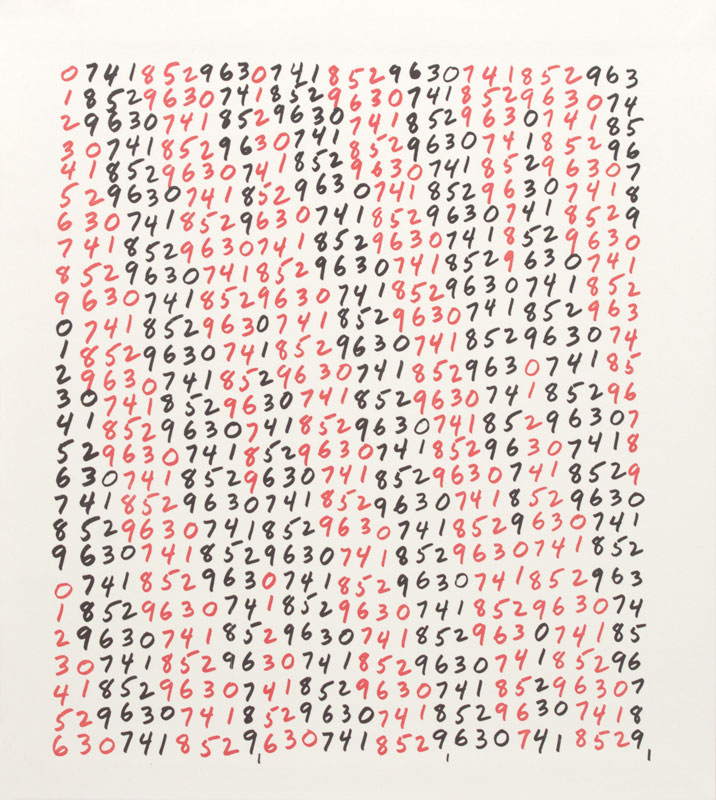 074185296307418529630741852963
185296307418529630741852963074
296307418529630741852963074185
307418529630741852963074185296
418529630741852963074185296307
529630741852963074185296307418
630741852963074185296307418529
741852963074185296307418529630
852963074185296307418529630741
963074185296307418529630741852
074185296307418529630741852963
185296307418529630741852963074
296307418529630741852963074185
307418529630741852963074185296
418529630741852963074185296307
529630741852963074185296307418
630741852963074185296307418529
741852963074185296307418529630
852963074185296307418529630741
963074185296307418529630741852
074185296307418529630741852963
185296307418529630741852963074
296307418529630741852963074185
307418529630741852963074185296
418529630741852963074185296307
529630741852963074185296307418
630741852963074185296307418529